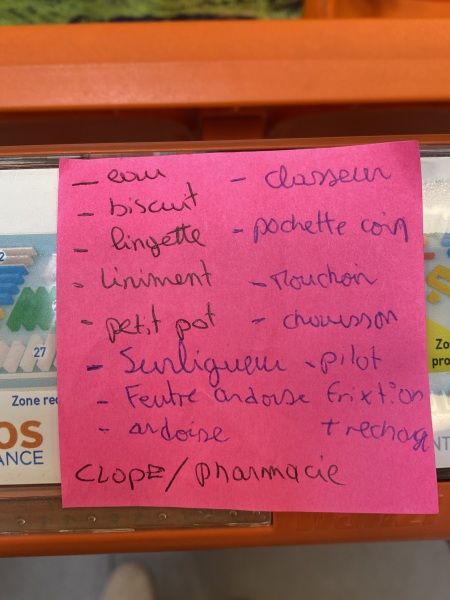 - eau
- biscuit
- lingette
- liniment
- petit pot
- classeur
- pochette coin
- Mouchoir
- chausson
- Surligneur - pilot
- Feutre ardoise frixtion
- ardoise + recharge
CLOPE / pharmacie
27
Zone
OS
ANCE
Zo
pro
NT